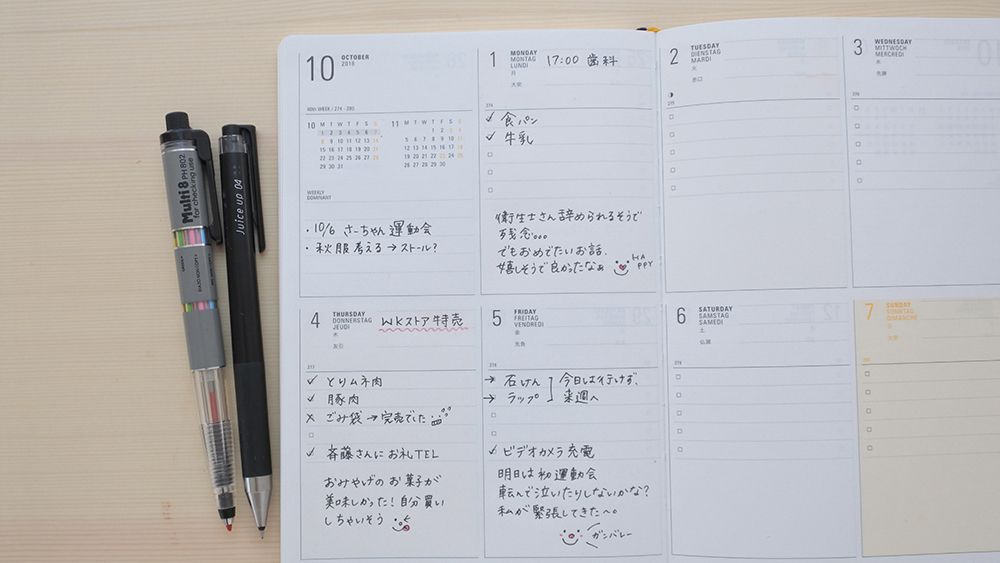 Multi 8 PH 802
for checking use
Juice up 04
10
OCTOBER
2018
40th WEEK / 274 - 280
10 M T W T F S S
1 2 3 4 5 6 7
8 9 10 11 12 13 14
15 16 17 18 19 20 21
22 23 24 25 26 27 28
29 30 31
11 M T W T F S S
1 2 3 4
5 6 7 8 9 10 11
12 13 14 15 16 17 18
19 20 21 22 23 24 25
26 27 28 29 30
WEEKLY
DOMINANT
・10/6 さーちゃん 運動会
・秋服考える→ストール?
1
MONDAY
MONTAG
LUNDI
月
大安
17:00 歯科
274
✓ 食パン
✓ 牛乳
衛生士さん辞められるそうで
残念。。。
でもおめでたいお話、
嬉しそうで良かったなぁ
HA
PPY
2
TUESDAY
DIENSTAG
MARDI
火
赤口
275
3
WEDNESDAY
MITTWOCH
MERCREDI
水
先勝
276
4
THURSDAY
DONNERSTAG
JEUDI
木
友引
WKストア特売
277
✓ とりムネ肉
✓ 豚肉
× ごみ袋→完売でした
✓ 斉藤さんにお礼TEL
おみやげのお菓子が
美味しかった!自分買い
しちゃいそう
5
FRIDAY
FREITAG
VENDREDI
金
先負
278
→ 石けん
→ ラップ
今日は行けず、
来週へ
✓ ビデオカメラ充電
明日は初運動会
転んで泣いたりしないかな?
私が緊張してきた〜。
ガンバレー
6
SATURDAY
SAMSTAG
SAMEDI
土
仏滅
279
7
SUNDAY
SONNTAG
DIMANCHE
日
大安
280